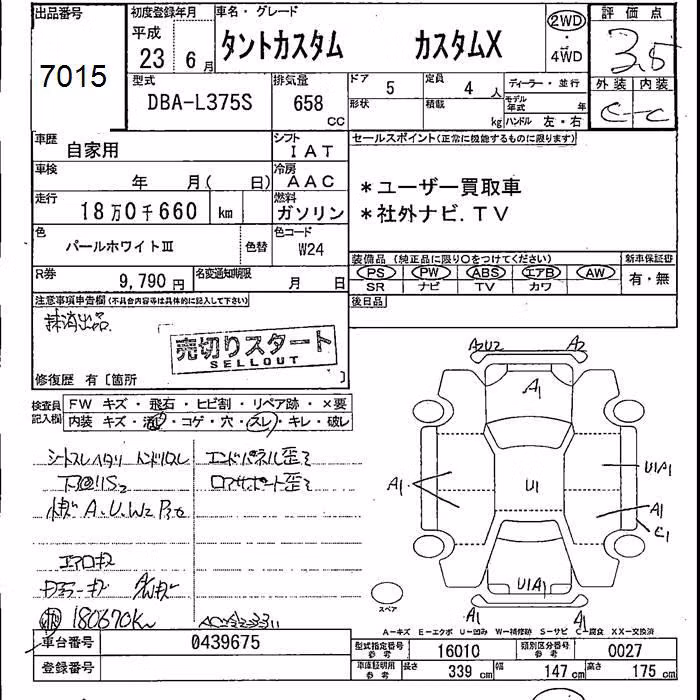 出品番号 初度登録年月 車名・グレード 2WD 評価点
7015 平成 23 年 6 月 タントカスタム カスタムX 4WD 3.5
型式 DBA-L375S 排気量 658 CC ドア 5 定員 4 人 ディーラー・並行 外装 内装
形状 積載 kg モデル年式 年 ハンドル 左・右 C-C
車歴 自家用 シフト IAT セールスポイント(正常に機能するものに限ります)
車検 年 月( 日) 冷房 AAC *ユーザー買取車
走行 18万0千660 km 燃料 ガソリン *社外ナビ.TV
色 パールホワイトⅢ 色替 色コード W24
装備品(純正品に限り○をつけてください) 新車保証書
R券 9,790円 名変通知期限 月 日 PS PW ABS エアB AW 有・無
SR ナビ TV カワ
注意事項申告欄(不具合内容等は具体的に記入して下さい) 後日品
抹消出品
売切りスタート
SELLOUT
修復歴 有[箇所 ]
検査員記入欄 FW キズ・飛石・ヒビ割・リペア跡・×要
内装 キズ・・コゲ・穴・スレ・キレ・破レ
A2U2 A2
A1
エンドパネル歪ミ
ロアサポート歪ミ
A1 U1 U1A1
A.U.W2
A1
C1
U1A1
スペア
A1 A1
180670K
A―キズ E―エクボ U―凹み W―補修跡 S―サビ C―腐食 XX―交換済
車台番号 0439675 型式指定番号 参考 16010 類別区分番号 参考 0027
登録番号 車庫証明用 参考 長さ 339 cm 幅 147 cm 高さ 175 cm